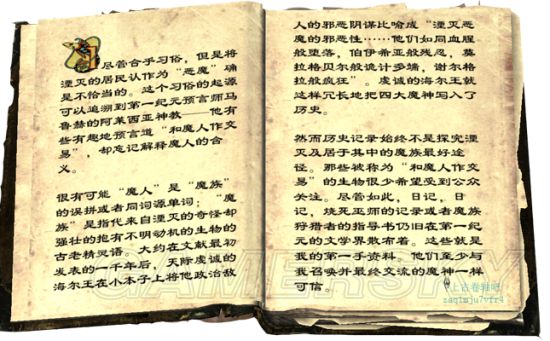 尽管合乎习俗，但是将
湮灭的居民认作为“恶魔”确
是不恰当的。这个习俗的起源
可以追溯到第一纪元预言师马
鲁赫的阿莱西亚神教——他有
些有趣地预言道“和魔人作交
易”，却忘记解释魔人的含
义。
很有可能“魔人”是“魔族”
的误拼或者同词源单词；“魔
族”是指代来自湮灭的奇怪却
强壮的抱有不明动机的生物的
古老精灵语。大约在文献最初
发表的一千年后，天际虔诚的
海尔王在小本子上将他政治敌
人的邪恶阴谋比喻成“湮灭恶
魔的邪恶性……他们如同血腥
般堕落，伯伊希亚般残忍，莫
拉格贝尔般诡计多端，谢尔格
拉般疯狂”。虔诚的海尔王就
这样冗长地把四大魔神写入了
历史。
然而历史记录始终不是探究湮
灭及居于其中的魔族最好途
径。那些被称为“和魔人作交
易”的生物很少希望受到公众
关注。尽管如此，日记，日
记，烧死巫师的记录或者魔族
狩猎者的指导书仍旧在第一纪
元的文学界散布着。这些就是
我的第一手资料。他们至少与
我召唤并最终交流的魔神一样
可信。
@上古卷轴吧
zaq1mju7vfr4
GAMERSKY